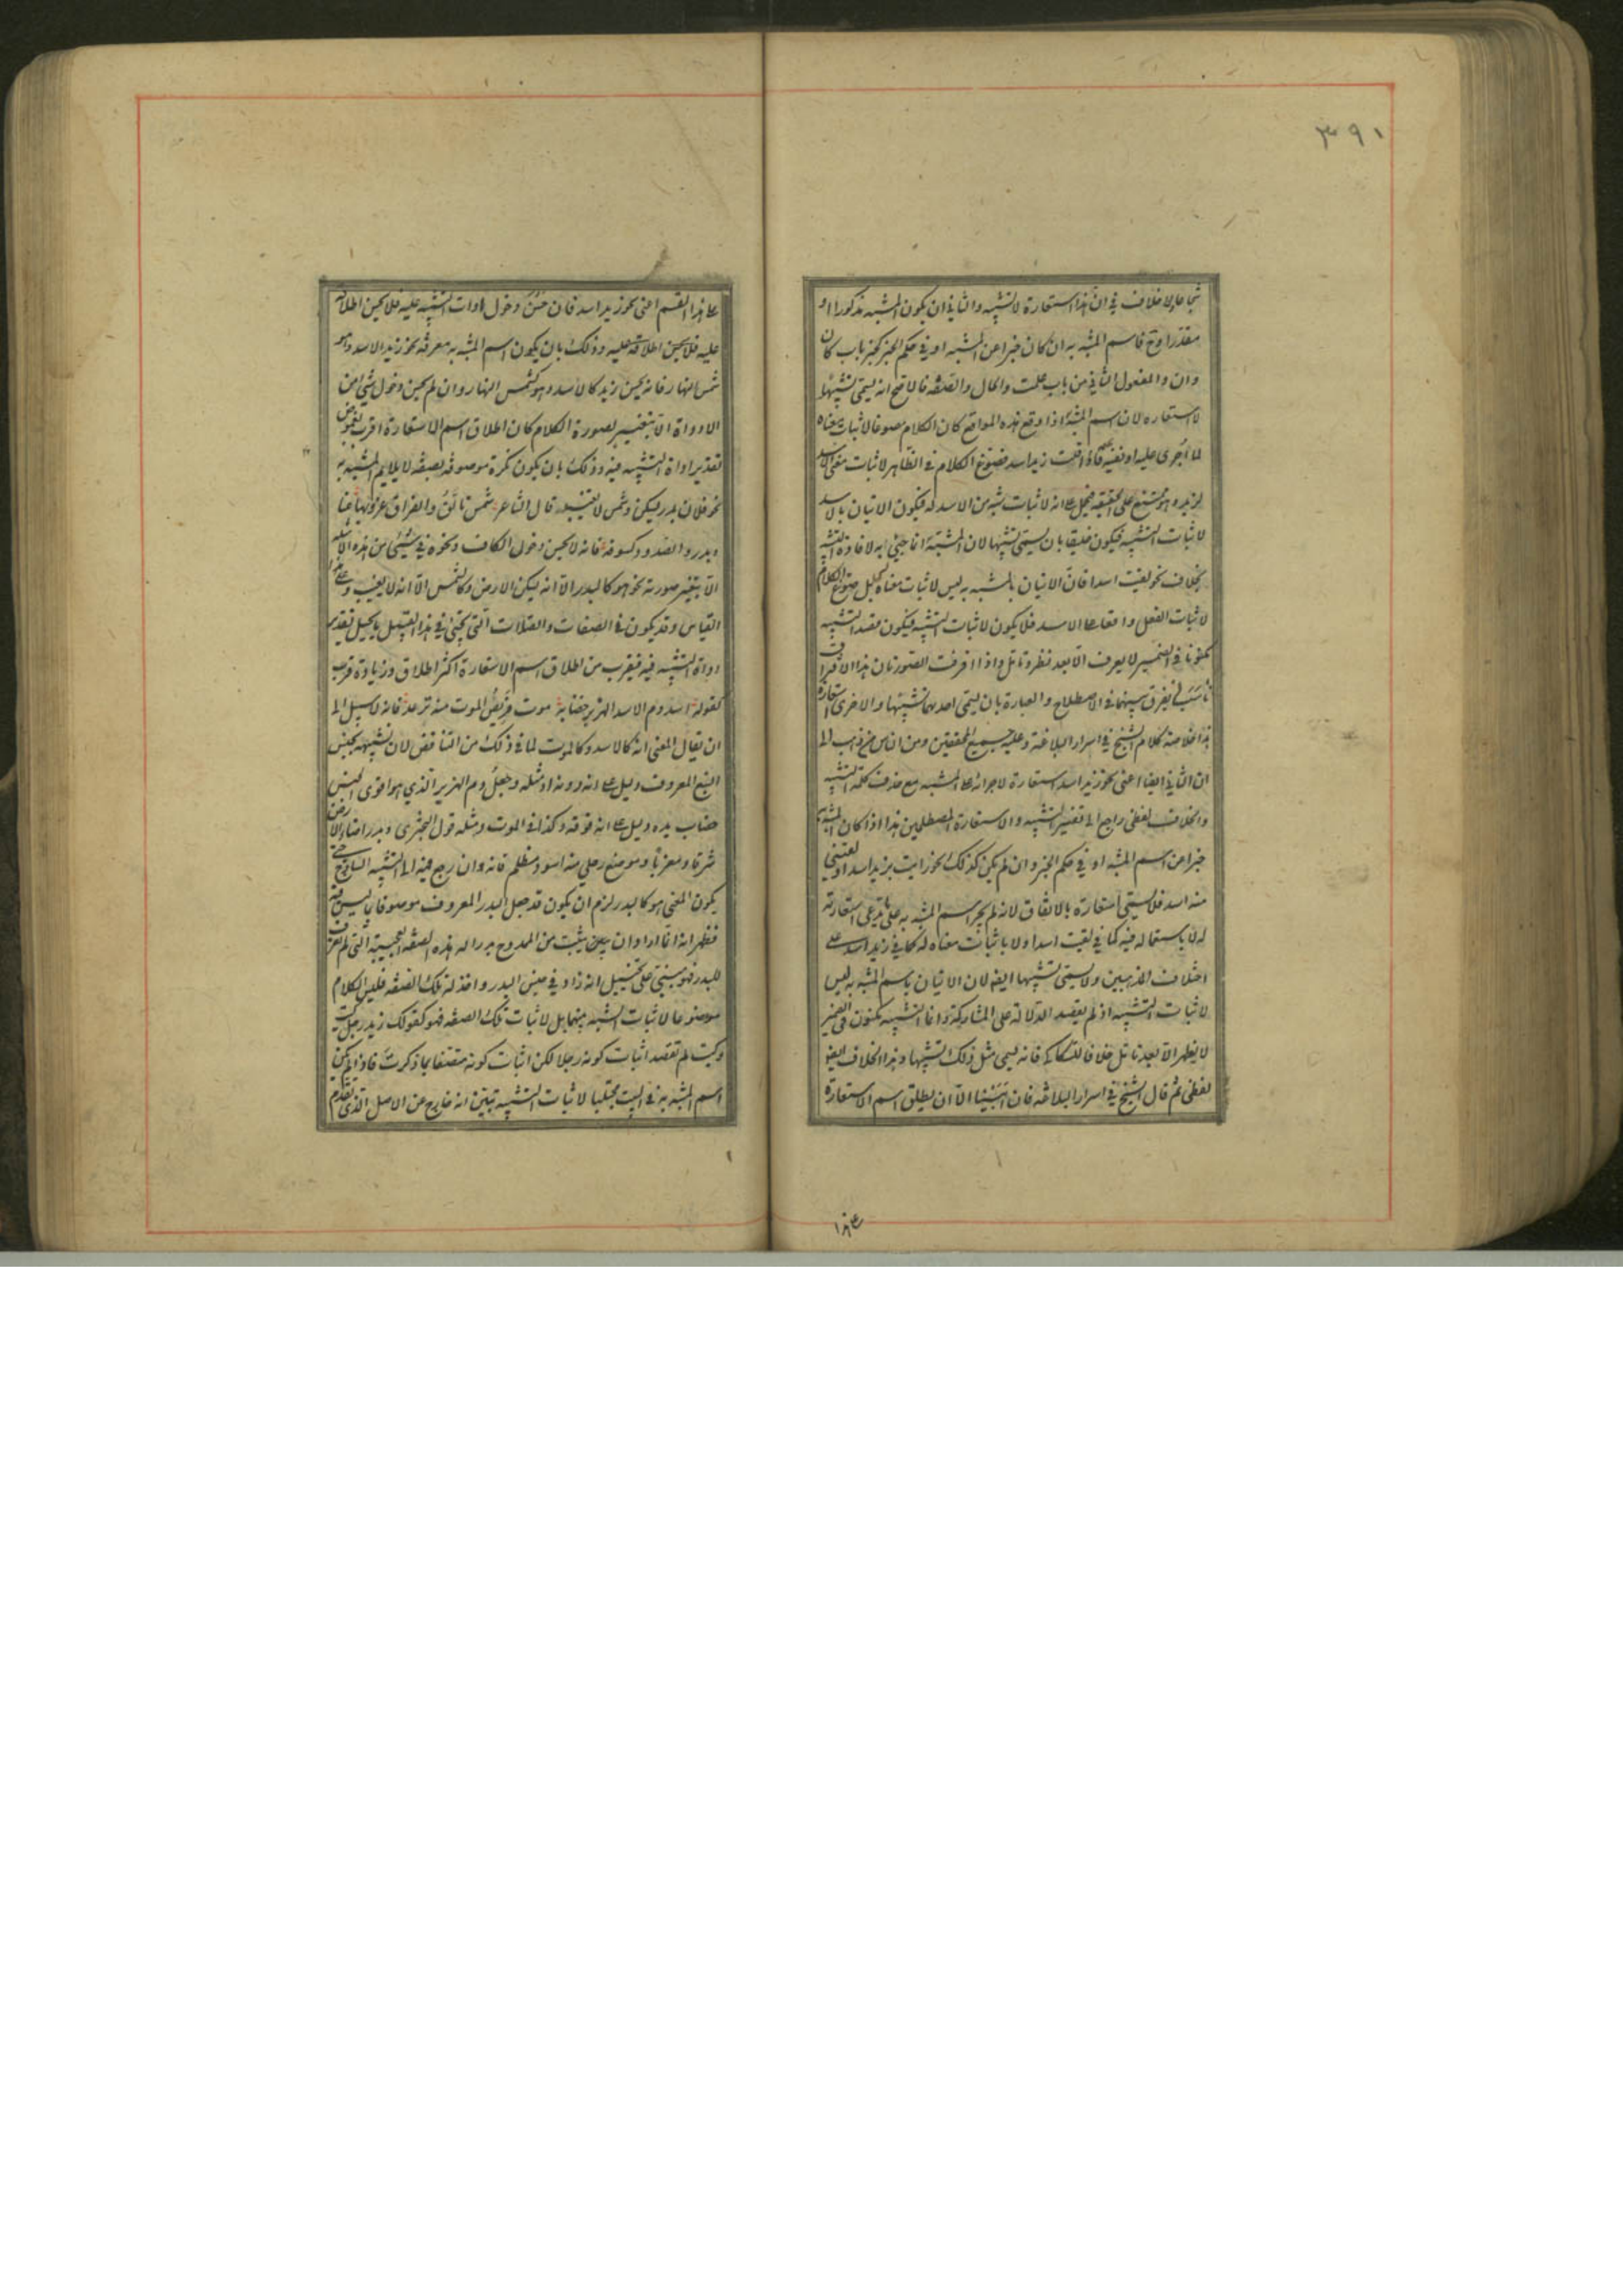 ٣٩١
شجاعا ولا خلاف في ان هذا استعارة لا تشبيه والثاني ان يكون المشبه مذكورا او
مقدرا وح فاسم المشبه به ان كان خبرا عن المشبه او في حكم الخبر كخبر باب كان
وان والمفعول الثاني من باب علمت والحال والصفه فالاصح انه يسمى تشبيها
لا استعاره لان اسم المشبه به اذا وقع هذه المواقع كان الكلام مصوغا لاثبات معناه
لما اجرى عليه او نفيه عنه فاذا قلت زيد اسد فصوغ الكلام في الظاهر لاثبات معنى الاسد
لزيد وهو ممتنع على الحقيقه فيحمل على انه لاثبات شبه من الاسد له فيكون الاتيان بالاسد
لاثبات التشبيه فيكون خليقا بان يسمى تشبيها لان المشبه به انما جيئ به لافادة التشبيه
بخلاف نحو لقيت اسدا فان الاتيان بالمشبه به ليس لاثبات معناه لشئ بل صوغ الكلام
لاثبات الفعل واقعا على الاسد فلا يكون لاثبات التشبيه فيكون قصد التشبيه
مكنونا في الضمير لا يعرف الا بعد نظر وتامل واذا افترقت الصورتان هذا الافتراق
ناسب ان يفرق بينهما في الاصطلاح والعبارة بان يسمى احديهما تشبيها والاخرى استعارة
هذا خلاصة كلام الشيخ في اسرار البلاغة وعليه جميع المحققين ومن الناس من ذهب الى
ان الثاني ايضا اعنى نحو زيد اسد استعارة لاجرائه على المشبه مع حذف كلمة التشبيه
والخلاف لفظى راجع الى تفسير التشبيه والاستعارة المصطلحين هذا اذا كان المشبه به
خبرا عن اسم المشبه او في حكم الخبر وان لم يكن كذلك نحو رايت بزيد اسدا ولقينى
منه اسد فلا يسمى استعارة بالاتفاق لانه لم يجر اسم المشبه به على ما يدعى استعارته
له لا باستعماله فيه كما في لقيت اسدا ولا باثبات معناه له كما في زيد اسد على
اختلاف المذهبين ولا يسمى تشبيها ايضا لان الاتيان باسم المشبه به ليس
لاثبات التشبيه اذ لم يقصد الدلالة على المشاركة وانما التشبيه مكنون في الضمير
لا يظهر الا بعد تامل خلافا للسكاكى فانه يسمى مثل ذلك تشبيها وهذا الخلاف ايضا
لفظى ثم قال الشيخ في اسرار البلاغه فان ابيت الا ان يطلق اسم الاستعارة
على هذا القسم اعنى نحو زيد اسد فان حسن دخول ادوات التشبيه عليه فلا يحسن اطلاقه
عليه فلا يحسن اطلاقه عليه وذلك بان يكون اسم المشبه به معرفه نحو زيد الاسد وهو
شمس النهار فانه يحسن زيد كالاسد وهو كشمس النهار وان لم يحسن دخول شئ من
الادواة الا بتغيير لصورة الكلام كان اطلاق اسم الاستعارة اقرب لغموض
تقدير اداة التشبيه فيه وذلك بان يكون نكرة موصوفه بصفه لا يلايم المشبه به
نحو فلان بدر يسكن وشمس لا تغيب قال الشاعر شمس تألق والفراق غروبها عنا
وبدر والصدود كسوفه فانه لا يحسن دخول الكاف ونحوه في شيئ من هذه الامثله
الا بتغير صورته نحو هو كالبدر الا انه يسكن الارض وكالشمس الا انه لا يغيب وعلى هذا
القياس وقد يكون في الصفات والصلات التى تجئ في هذا القبيل ما يحيل تقدير
اداة التشبيه فيه فيقرب من اطلاق اسم الاستعارة اكثر اطلاق وزيادة قرب
كقوله اسد دم الاسد الهزبر خضابه موت فريص الموت منه ترعد فانه لا سبيل الى
ان يقال المعنى انه كالاسد وكالموت لما في ذلك من التناقض لان تشبيهه بجنس
السبع المعروف دليل على انه دونه او مثله وجعل دم الهزبر الذي هو اقوى الجنس
خضاب يده دليل على انه فوقه وكذا في الموت ومثله قول البحترى وبدر اضاء الارض
شرقا ومغربا وموضع رحلي منه اسود مظلم فانه وان رجع فيه الى التشبيه الساذج حتى
يكون المعنى هو كالبدر لزم ان يكون قد جعل البدر المعروف موصوفا بما ليس فيه
فظهر انه انما اراد ان يثبت من الممدوح بدرا له هذه الصفه العجيبة التى لم تعرف
للبدر فهو مبنى على تخييل انه زاد في جنس البدر واحد له تلك الصفه فليس الكلام
موضوعا لاثبات الشبه بينهما بل لاثبات تلك الصفه فهو كقولك زيد رجل كيت
وكيت لم تقصد اثبات كونه رجلا لكن اثبات كونه متصفا بما ذكرت فاذا لم يكن
اسم المشبه به في البيت مجتلبا لاثبات التشبيه تبين انه خارج عن الاصل الذى تقدم